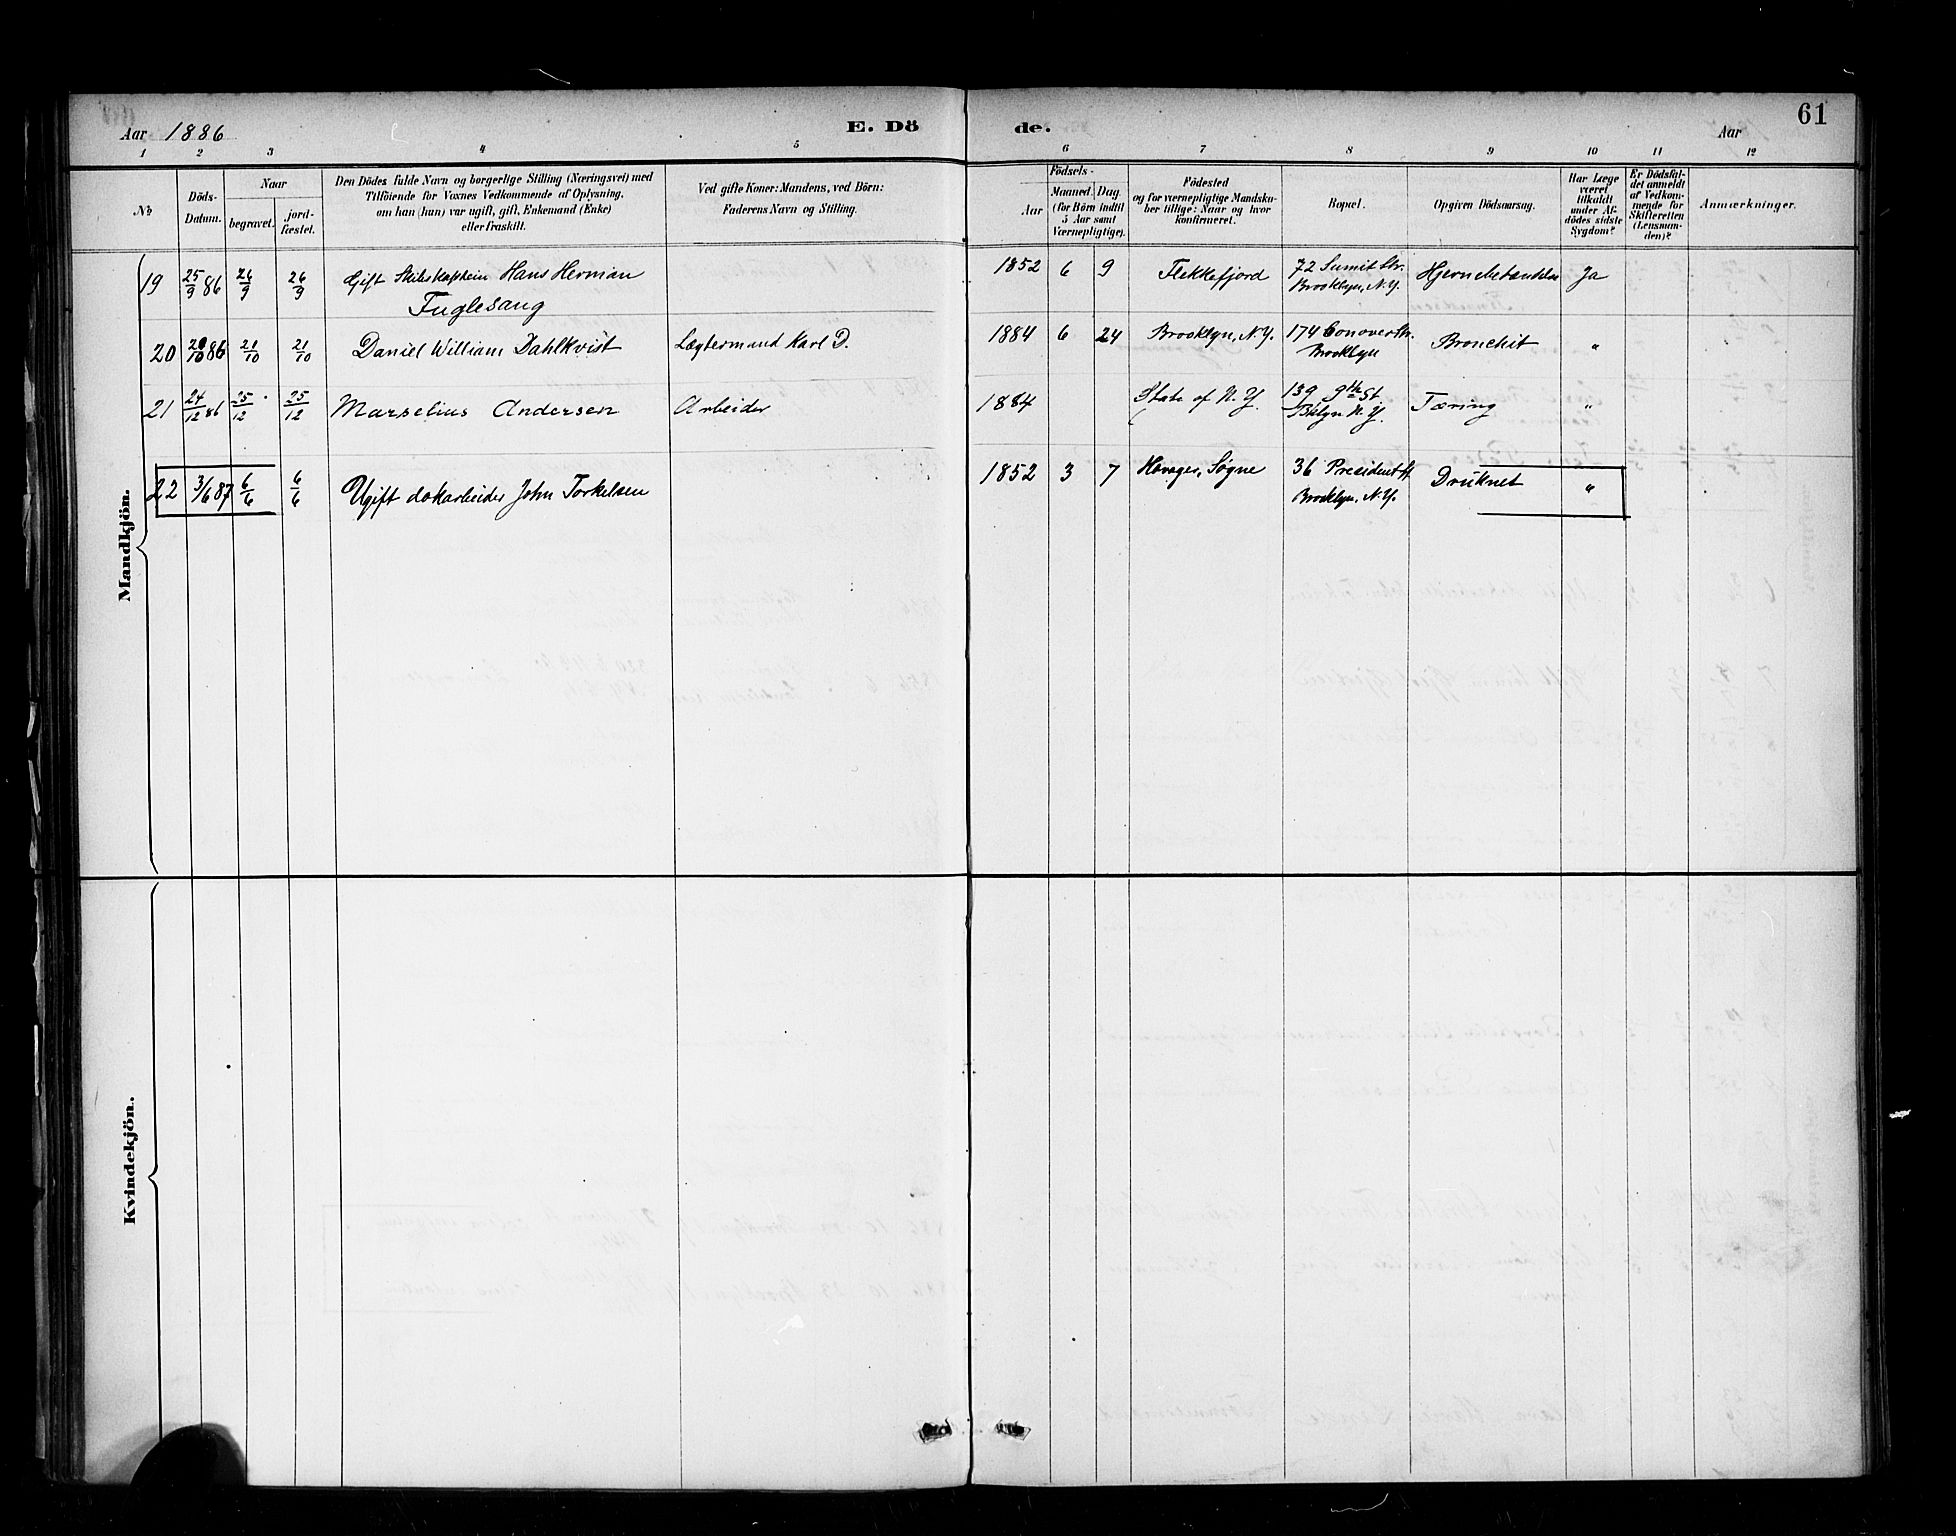 Aar 1886 E. Dö de. Aar 61
1 2 3 4 5 6 7 8 9 10 11 12
No
Döds-
Datum.
Naar
begravet.
jord-
fæstet.
Den Dödes fulde Navn og borgerlige Stilling (Næringsvei) med
Tilföiende for Voxnes Vedkommende af Oplysning,
om han (hun) var ugift, gift, Enkemand (Enke)
eller fraskilt.
Ved gifte Koner: Mandens, ved Börn:
Faderens Navn og Stilling.
Födsels-
Aar
Maaned.
Dag.
(for Börn indtil
5 Aar samt
Værnepligtige).
Födested
og for værnepligtige Mandska-
ber tillige: Naar og hvor
konfirmeret.
Bopæl.
Opgiven Dödsaarsag.
Har Læge
været
tilkaldt
under Af-
dödes sidste
Sygdom?
Er Dödsfal-
det anmeldt
af Vedkom-
mende for
Skifteretten
(Lensman-
den)?
Anmærkninger.
Mandkjön.
19 25/9 86 26/9 26/9 Gift Skibskaptein Hans Herman 1852 6 9 Flekkefjord 72 Sumit Str. Hjernebetændelse Ja
Fuglesang Brooklyn, N.Y.
20 20/10 86 21/10 21/10 Daniel William Dahlkvist Lægtermand Karl D. 1884 6 24 Brooklyn, N.Y. 174 Conover Str. Bronchit "
Brooklyn
21 24/12 86 25/12 25/12 Marselius Andersen Arbeider 1884 State of N.Y. 139 9th St Tæring "
Bklyn N.Y.
22 3/6 87 6/6 6/6 Ugift dokarbeider John Torkelsen 1852 3 7 Søgne 36 President St Druknet "
Brooklyn, N.Y.
Kvindekjön.